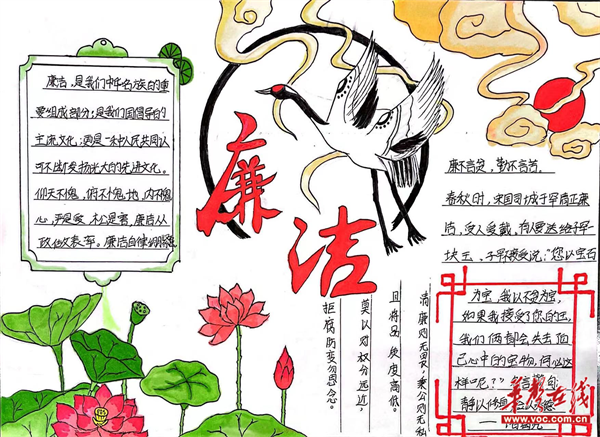 廉洁,是我们中华名族自的重
要组成部分;是我们国倡导的
主流文化;更是一种人民共同认
可不断发扬光大的先进文化。
仰天不愧,俯不愧地,内不愧
心,严是爱,松是害,廉洁从
政做表率。廉洁自律
廉洁
廉不言贫,勤不言苦。
春秋时,宋国司城子罕清正廉
洁,受人爱戴。有人要送给子罕
块玉,子罕拒受说:“您以宝石
为宝,我以不贪为宝,
如果我接受了您的玉,
我们俩都会失去自
己心中的宝物,何必这
样呢?”
静以修身
清廉则无畏,秉公则无私
且将品度高低。
莫以对权分远近,
拒腐防变勿思念。
华声在线
www.voc.com.cn